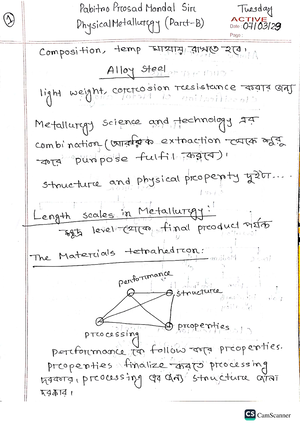 Pabitro Prosad Mondal Sir Tuesday
Physical Metallurgy (Part-B) ACTIVE
Date: 07/03/23
Page:
Composition, temp মাথায় রাখতে হবে।
Alloy Steel
light weight, corrosion resistance করার জন্য
Metallurgy science and technology এর
combination (আকরিক extraction থেকে শুরু
করে purpose fulfil করবে)।
Structure and physical property দুইটা....
Length scales in Metallurgy:
level থেকে final product পর্যন্ত
The Materials tetrahedron:
performance
structure
properties
processing
performance কে follow করে properties.
properties finalize করতে processing
দরকার। processing এর জন্য structure জানা
দরকার।
CS CamScanner